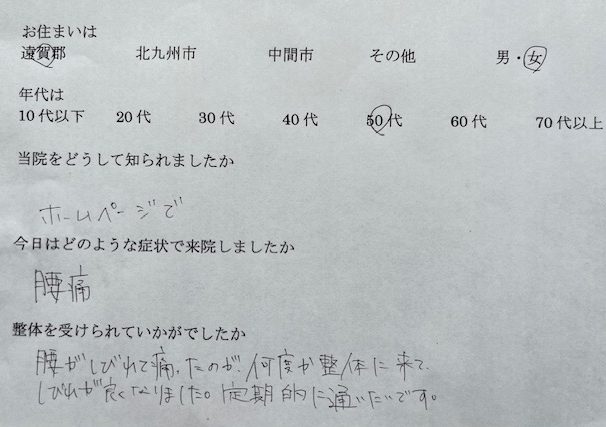 お住まいは
遠賀郡 北九州市 中間市 その他 男・女
年代は
10代以下 20代 30代 40代 50代 60代 70代以上
当院をどうして知られましたか
ホームページで
今日はどのような症状で来院しましたか
腰痛
整体を受けられていかがでしたか
腰がしびれて痛かったのが、何度か整体に来て、
しびれが良くなりました。定期的に通いたいです。